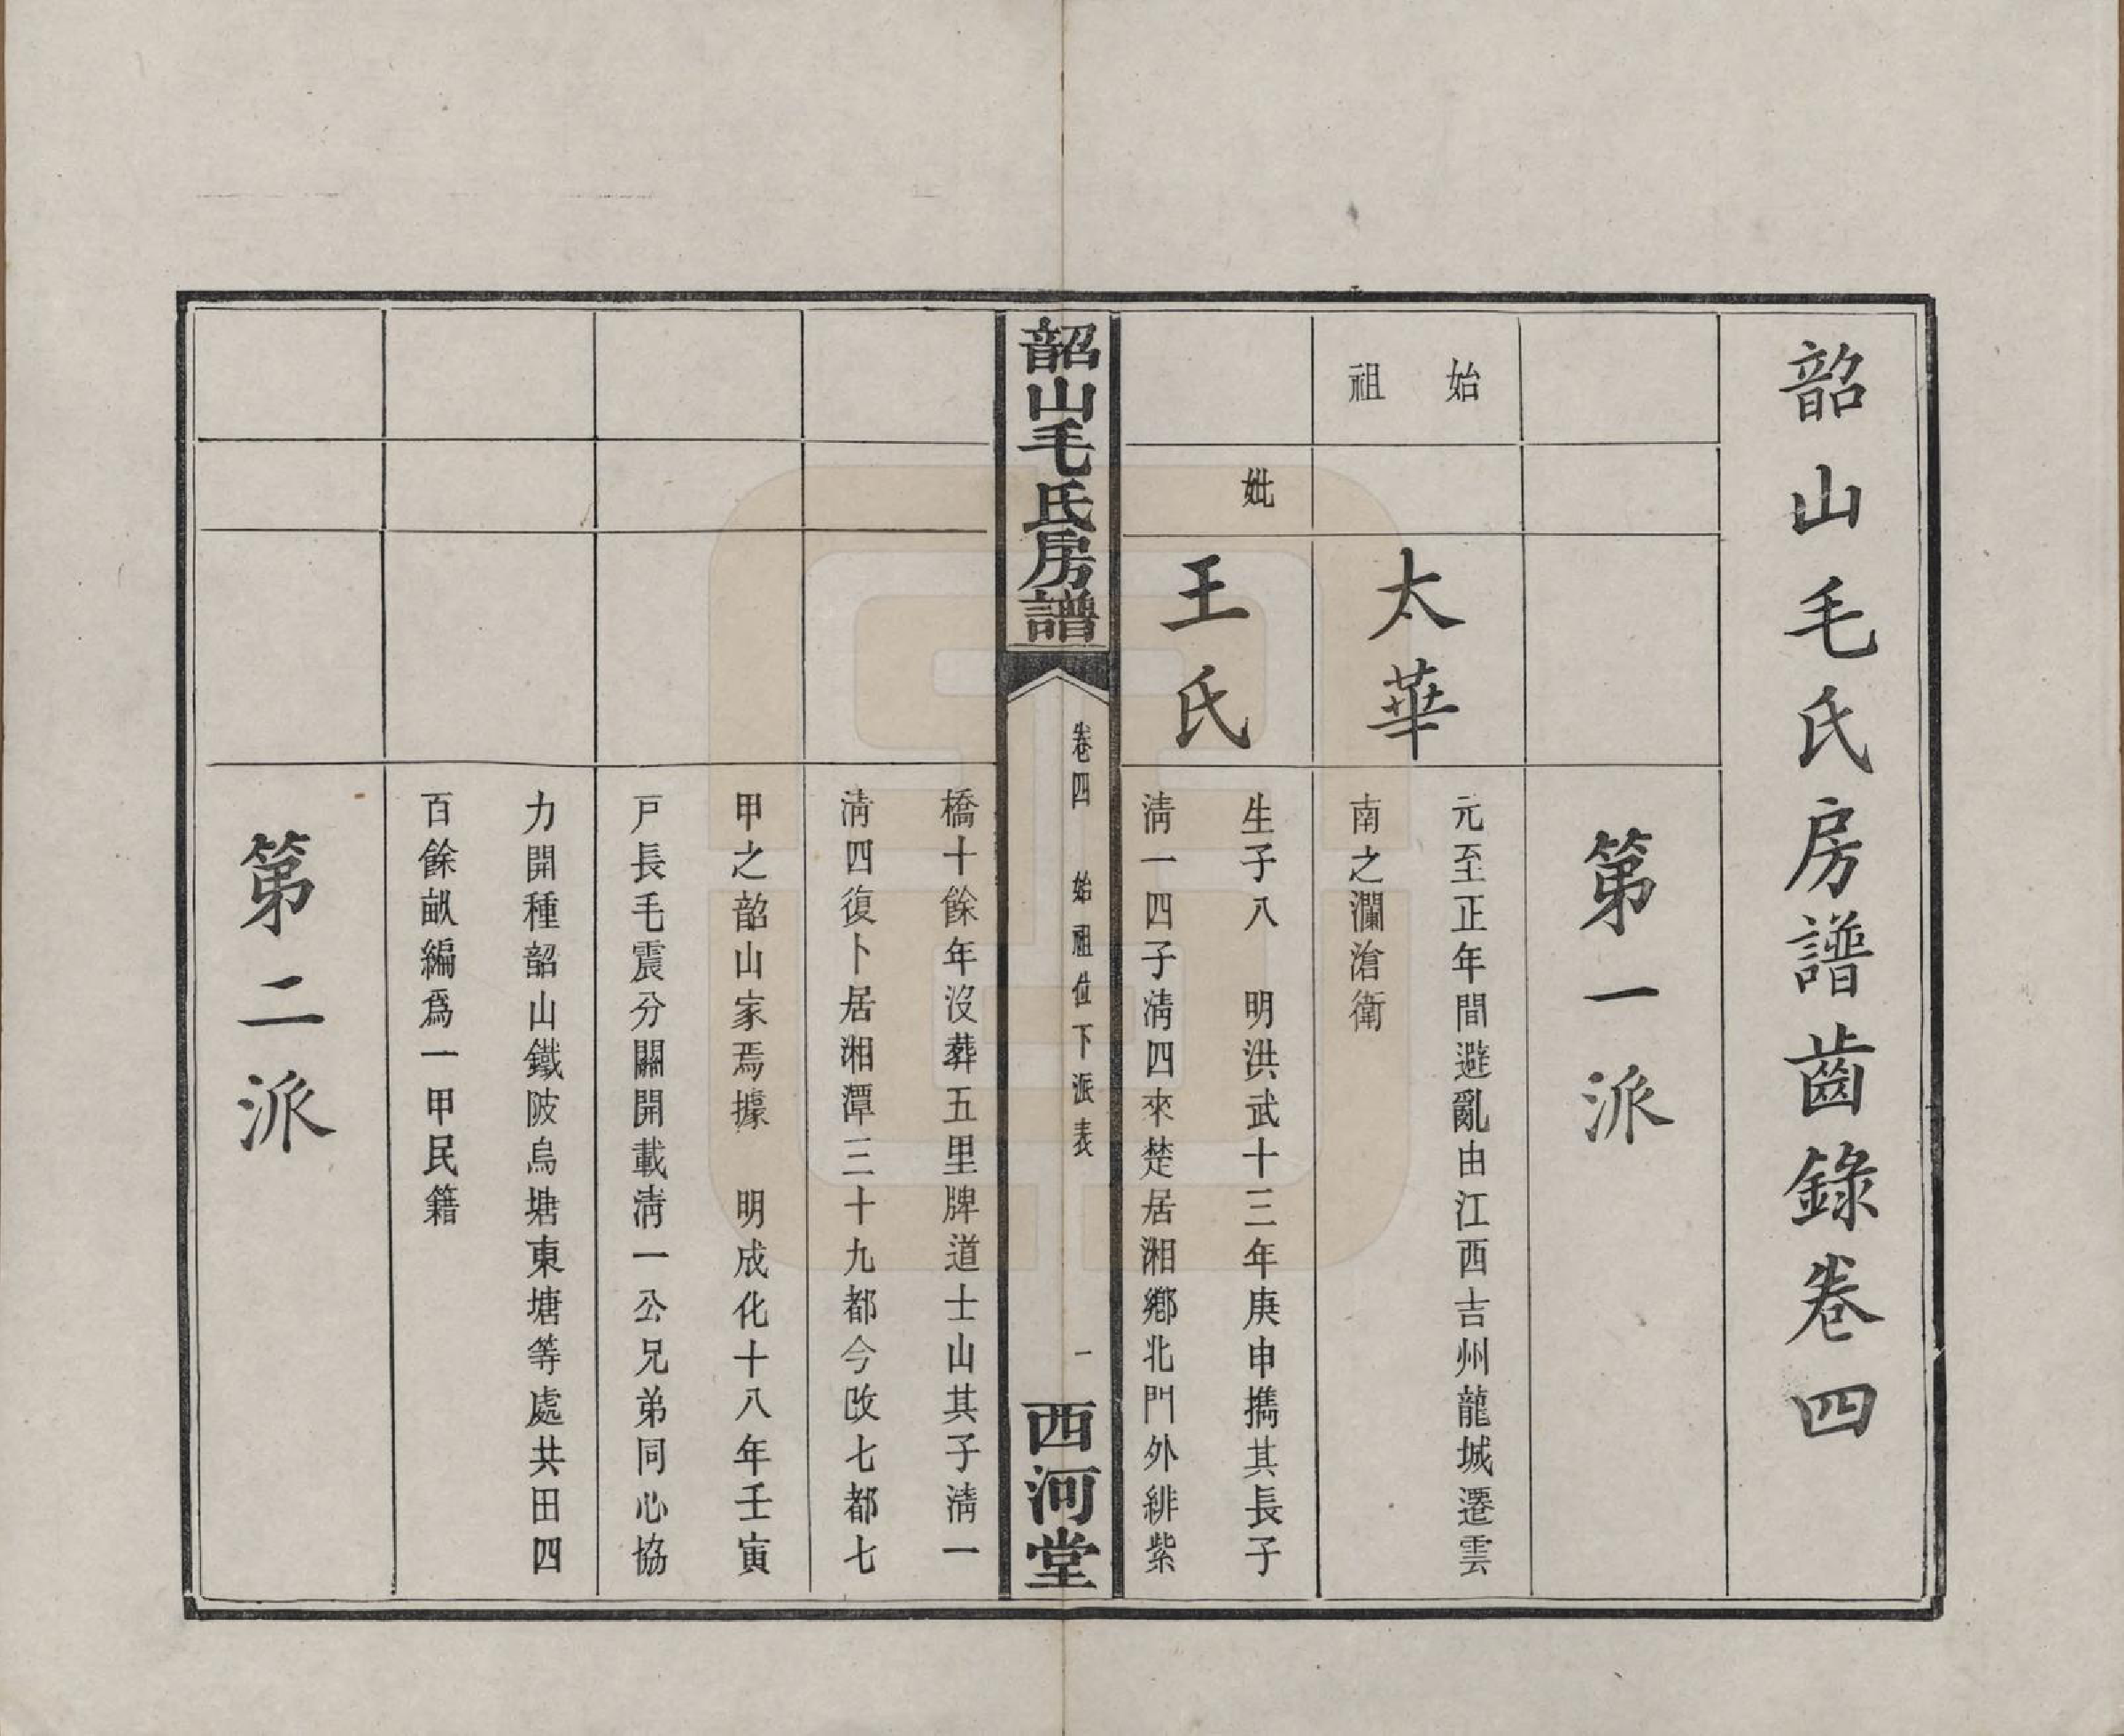 韶山毛氏房譜齒錄卷四
第一派
始
祖
太華
元至正年間避亂由江西吉州龍城遷雲
南之瀾滄衛
妣
王氏
生子八　明洪武十三年庚申攜其長子
淸一四子淸四來楚居湘鄕北門外緋紫
韶山毛氏房譜
卷四　始祖位下派表
一
西河堂
橋十餘年沒葬五里牌道士山其子淸一
淸四復卜居湘潭三十九都今改七都七
甲之韶山家焉據　明成化十八年壬寅
戸長毛震分關開載淸一公兄弟同心協
力開種韶山鐵陂烏塘東塘等處共田四
百餘畝編爲一甲民籍
第二派